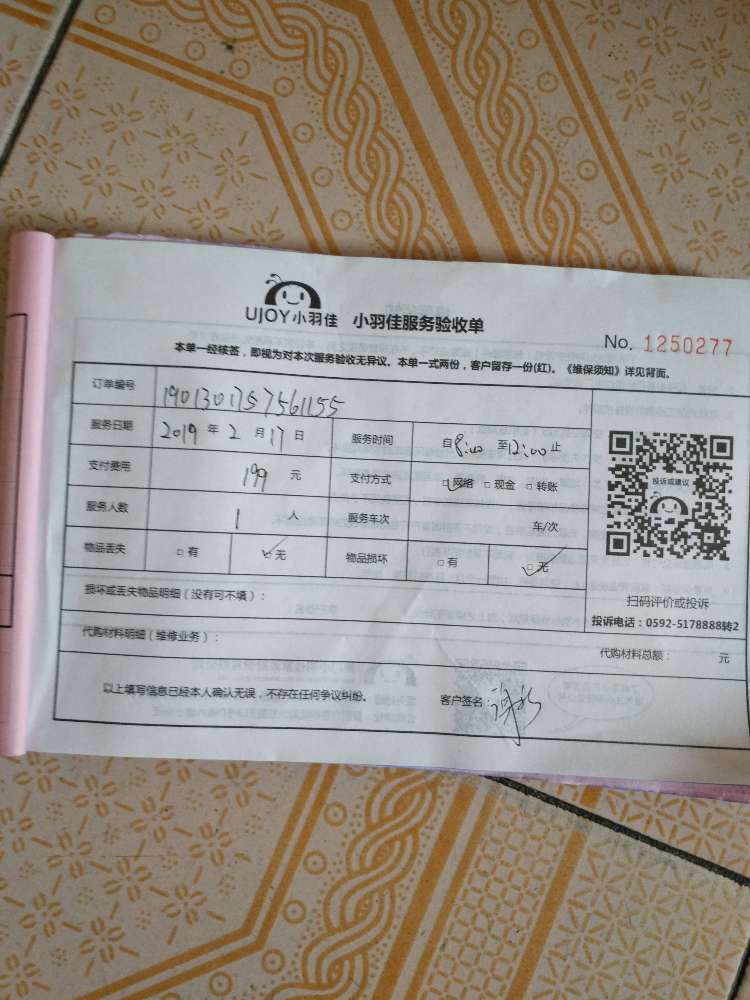 UJOY小羽佳 小羽佳服务验收单
No. 1250277
本单一经核签，即视为对本次服务验收无异议。本单一式两份，客户留存一份(红)。《维保须知》详见背面。
订单编号 1901301757561155
服务日期 2019 年 2 月 17 日 服务时间 自8:00 至12:00止
支付费用 199 元 支付方式 □网络 □现金 □转账
服务人数 1 人 服务车次 车/次
物品丢失 □有 □无 物品损坏 □有 □无
损坏或丢失物品明细（没有可不填）：
代购材料明细（维修业务）：
代购材料总额： 元
以上填写信息已经本人确认无误，不存在任何争议纠纷。 客户签名：
投诉或建议
扫码评价或投诉
投诉电话：0592-5178888转2